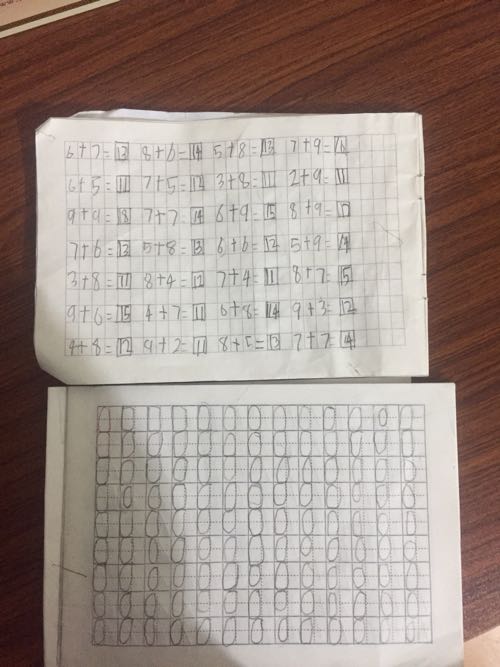 6+7=13 8+6=14 5+8=13 7+9=16
6+5=11 7+5=12 3+8=11 2+9=11
9+9=18 7+7=14 6+9=15 8+9=17
7+6=13 5+8=13 6+6=12 5+9=14
3+8=11 8+4=12 7+4=11 8+7=15
9+6=15 4+7=11 6+8=14 9+3=12
4+8=12 9+2=11 8+5=13 7+7=14
0 0 0 0 0 0 0 0 0 0 0 0 0
0 0 0 0 0 0 0 0 0 0 0 0 0
0 0 0 0 0 0 0 0 0 0 0 0 0
0 0 0 0 0 0 0 0 0 0 0 0 0
0 0 0 0 0 0 0 0 0 0 0 0 0
0 0 0 0 0 0 0 0 0 0 0 0 0
0 0 0 0 0 0 0 0 0 0 0 0 0
0 0 0 0 0 0 0 0 0 0 0 0 0
0 0 0 0 0 0 0 0 0 0 0 0 0